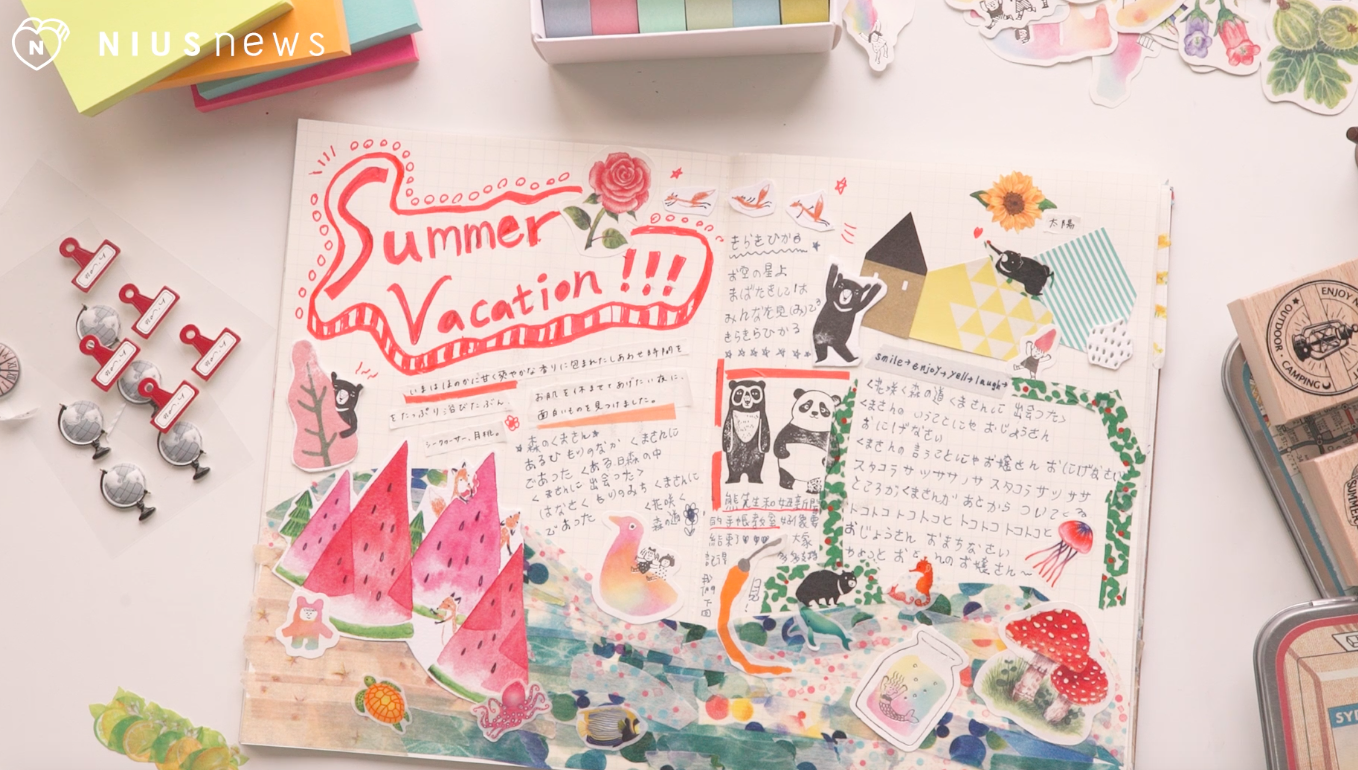 NIUSnews
Summer
Vacation!!!
いまはほのかに甘く爽やかな香りに包まれたしあわせ時間を
をたっぷり浴びたぶん
お肌を休ませてあげたい夜に、
面白いものを見つけました。
シークヮーサー、月桃。
森のくまさん
あるひ もりのなか くまさんに
であった くある日森の中
くまさんに 出会った>
はなさく もりのみち くまさんに
であった
<花咲く
森の道>
きらきひかる
お空の星よ
まばたきしては
みんなを見(み)てる
きらきらひかる
太陽
smile+enjoy+yell+laugh+
<花咲く森の道 くまさんに 出会った>
くまさんの いうことにゃ おじょうさん
おにげなさい
<くまさんの 言うことにゃ お嬢さん おにげなさい>
スタコラ サッササノサ スタコラ サッササ
ところが くまさんが あとから ついてくる
トコトコ トコトコと トコトコトコトコと
おじょうさん おまちなさい
ちょっと お
のお嬢さん〜
的手帳教室
大家
我們下回
ENJOY
OUTDOOR
CAMPING
SUMMER